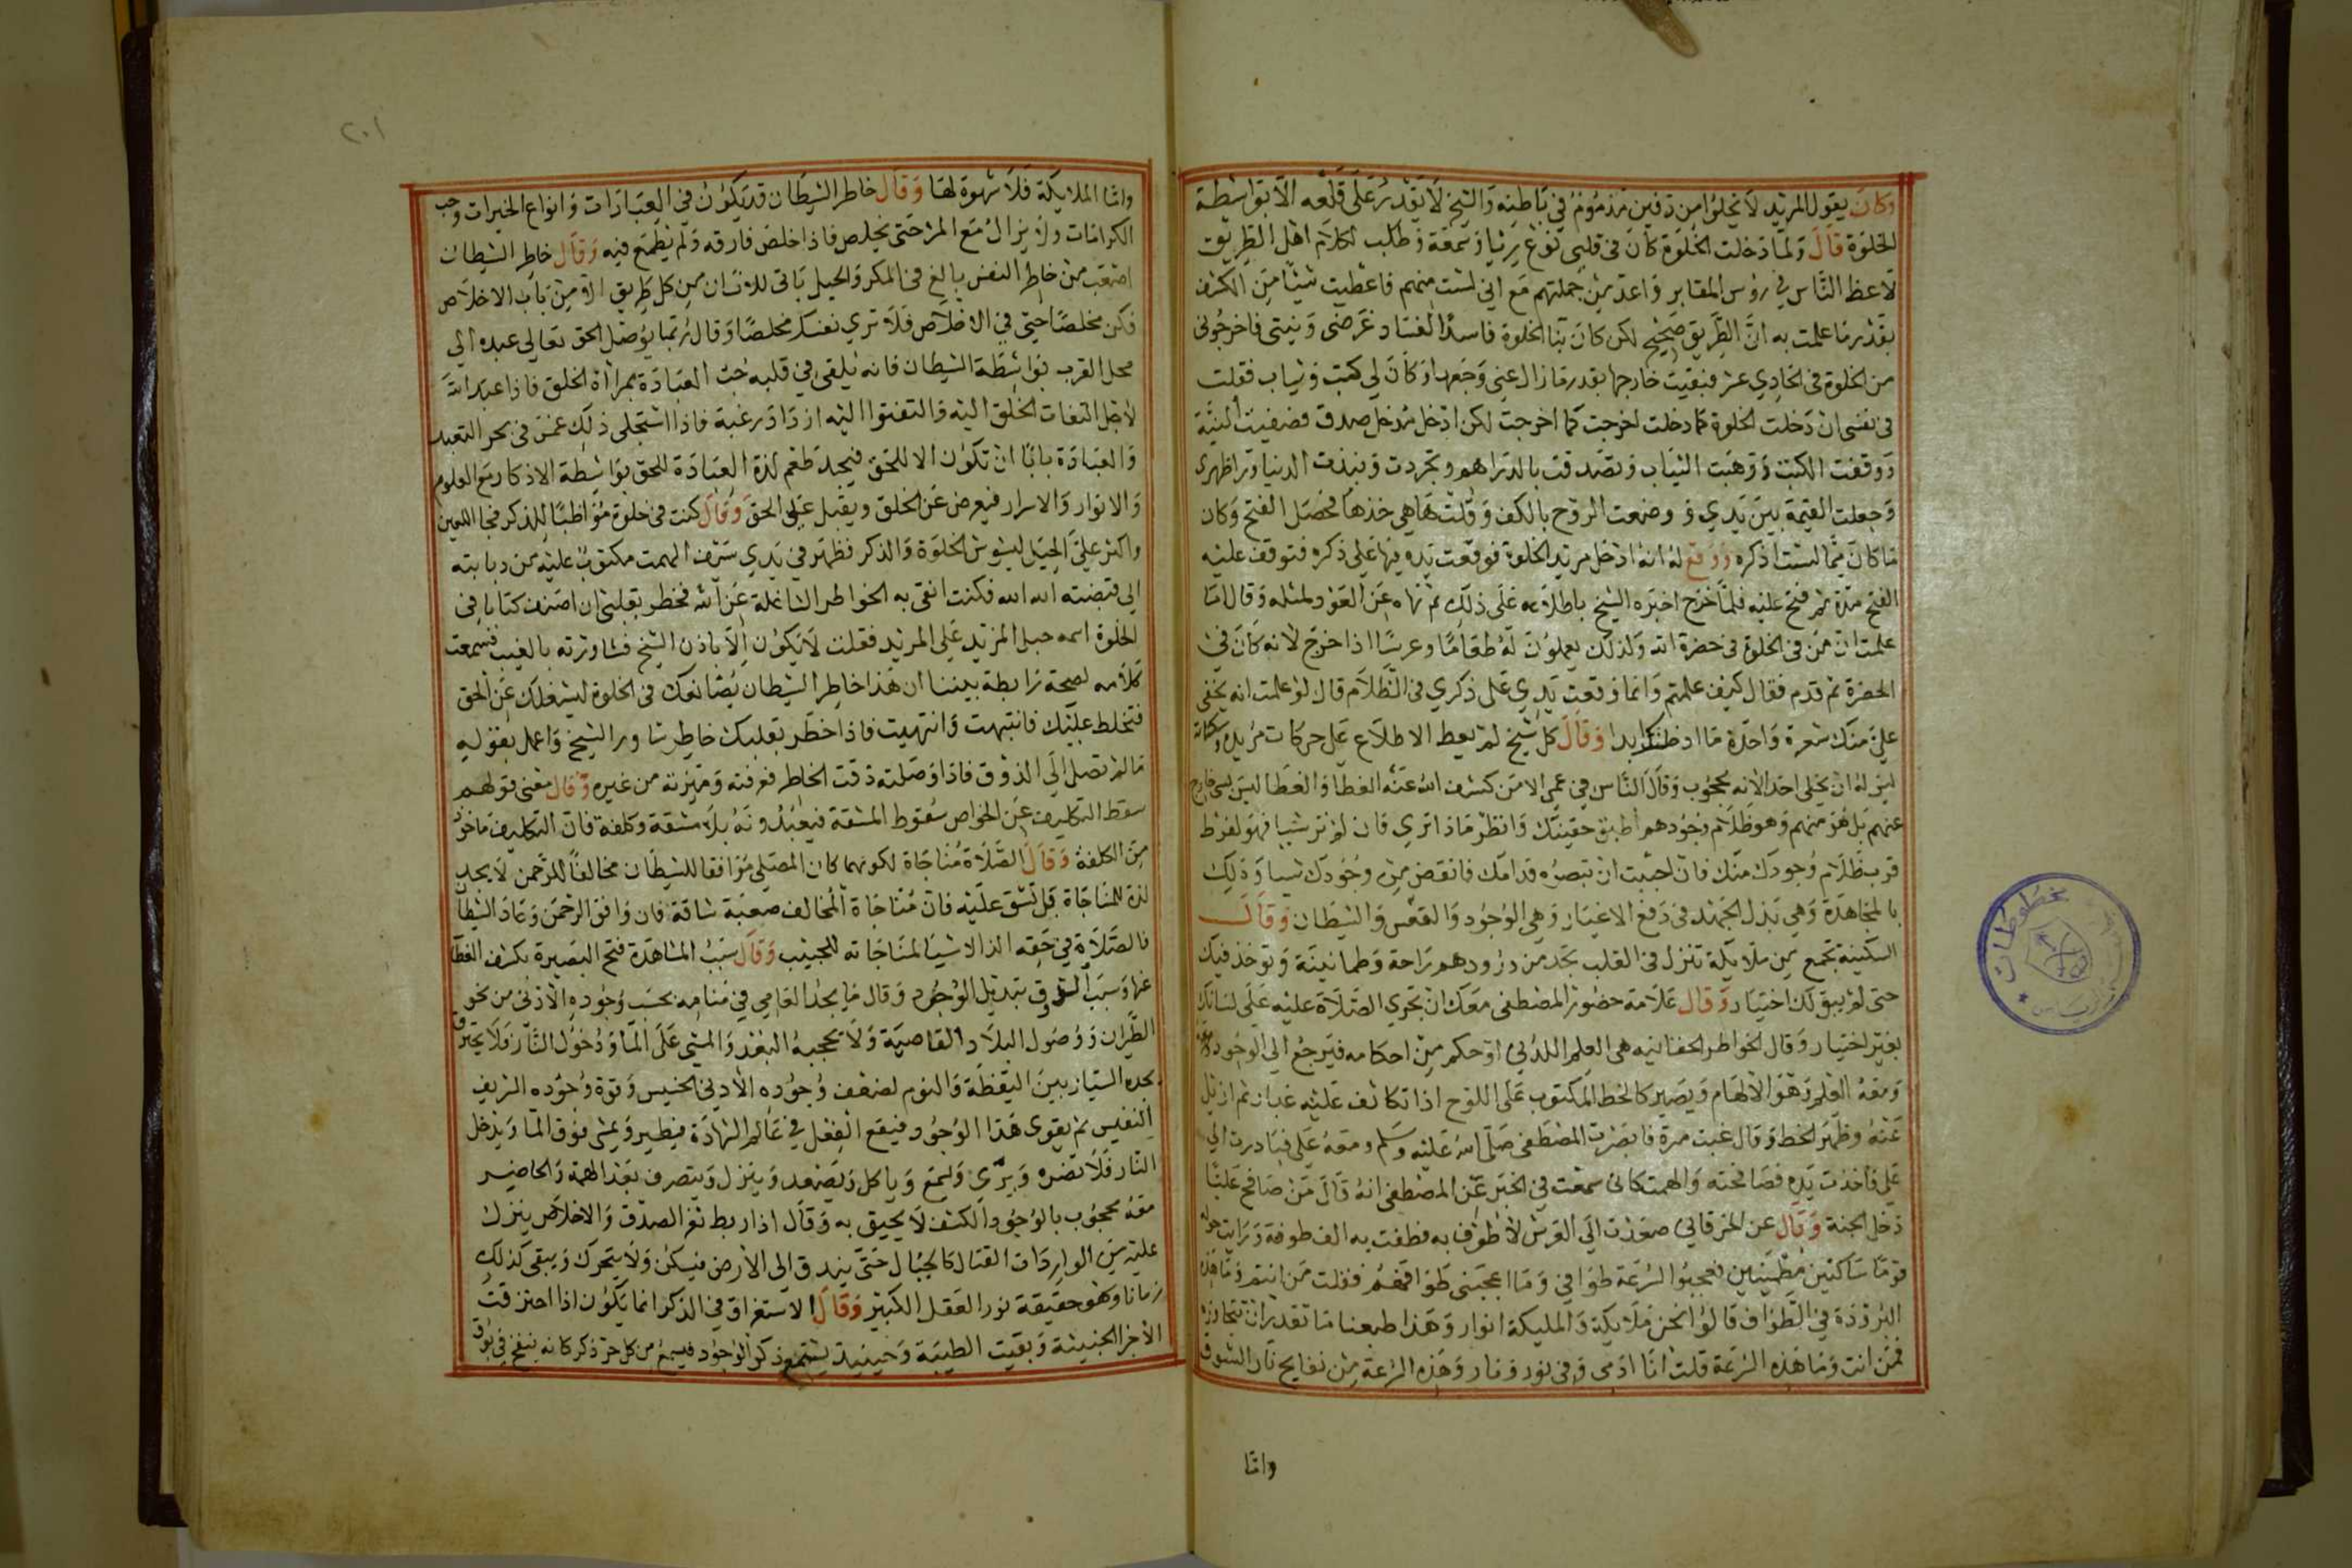 وكان يقول المريد لا يخلوا من دفين مذموم في باطنه والشيخ لا يقدر على قلعه الا بواسطة
الخلوة قال ولما دخلت الخلوة كان في قلبي نوع ريا وسمعة وطلب لكلام اهل الطريق
لاعظ الناس في روس المقابر واعد من جملتهم مع اني لست منهم فاعطيت شيئا من الكشف
بقدر ما علمت به ان الطريق صحيح لكن كان بنا الخلوة فاسدا لفساد غرضي ونيتي فاخرجوني
من الخلوة في الحادي عشر فبقيت خارجها بقدر ما زال عني وجعها وكان لي كتب وثياب فقلت
في نفسي ان دخلت الخلوة كما دخلت اخرجت كما اخرجت لكن ادخل مدخل صدق فصفيت النية
ووقفت الكتب ووهبت الثياب وتصدقت بالدراهم وتجردت ونبذت الدنيا ورا ظهري
وجعلت القيمة بين يدي ووضعت الروح بالكف وقلت ها هي خذها فحصل الفتح وكان
ما كان مما لست اذكره ووقع له انه ادخل مريد الخلوة فوقعت يده فيها على ذكره فتوقف عليه
الفتح مدة ثم فتح عليه فلما خرج اخبره الشيخ باطلاعه على ذلك ثم نهاه عن العود لمثله وقال اما
علمت ان من في الخلوة في حضرة الله ولذلك يعملون له طعاما وعرسا اذا خرج لانه كان في
الحضرة ثم قدم فقال كيف علمتم وانما وقعت يدي على ذكري في الظلام قال لو علمت انه يخفى
علي منك شعرة واحدة ما ادخلتك ابدا وقال كل شيخ لم يعط الاطلاع على حركات مريده وسكناته
ليس له ان يخلي احد الانه محجوب وقال الناس في عمى الا من كشف الله عنه الغطا والغطا ليس لشي خارج
عنهم بل هو منهم وهو ظلام وجودهم اطبق جفنيك وانظر ماذا ترى فان لم تر شيا فهو لفرط
قرب ظلام وجودك منك فان احببت ان تبصره قدامك فانقص من وجودك شيا وذلك
بالمجاهدة وهي بذل الجهد في دفع الاغيار وهي الوجود والنفس والشيطان وقال
السكينة تجمع من ملايكة تنزل في القلب تجد من ورودهم راحة وطمانينة وتوخذ فيك
حتى لم يبق لك اختيار وقال علامة حضور المصطفى معك ان تجري الصلاة عليه على لسانك
بغير اختيار وقال الخواطر الحقانيه هي العلم اللدني او حكم من احكامه فيرجع الى الوجود
ومعه العلم وهو الالهام ويصير كالخط المكتوب على اللوح اذا تكاثف عليه غبار ثم ازيل
عنه وظهر الخط وقال غبت مرة فابصرت المصطفى صلى الله عليه وسلم ومعه علي فبادرت الى
علي فاخذت يده فصافحته والهمت كاني سمعت في الخبر عن المصطفى انه قال من صافح عليا
دخل الجنة وقال عن الخرقاني صعدت الى العرش لاطوف به فطفت به الف طوفة ورايت حوله
قوما ساكنين مطمينين فعجبوا لسرعة طوافي وما اعجبني طوافهم فقلت من انتم وما هذه
البرودة في الطواف قالوا نحن ملايكة والمليكة انوار وهذا طبعنا ما نقدر ان نتجاوزه
فمن انت وما هذه السرعة قلت انا ادمي وفي نور ونار وهذه السرعة من نفايح نار الشوق
واما
٢٠١
واما الملايكة فلا شهوة لها وقال خاطر الشيطان قد يكون في العبادات وانواع الخيرات وحب
الكرامات ولا يزال مع المرء حتى يخلص فاذا خلص فارقه ولم يطمع فيه وقال خاطر الشيطان
اصعب من خاطر النفس بالغ في المكر والحيل ياتي للانسان من كل طريق الا من باب الاخلاص
فكن مخلصا حتى في الاخلاص فلا ترى نفسك مخلصا وقال ربما يوصل الحق تعالى عبده الى
محل القرب بواسطة الشيطان فانه يلقي في قلبه حب العبادة بمراأة الخلق فاذا عبد الله
لاجل التفات الخلق اليه والتفتوا اليه ازداد رغبة فاذا استحلى ذلك غمس في بحر التعبد
والعبادة بابا ان تكون الا للحق فيجد طعم لذة العبادة للحق بواسطة الاذكار مع العلوم
والانوار والاسرار فيعرض عن الخلق ويقبل على الحق وقال كنت في خلوة مواظبا للذكر فجا اللعين
واكثر علي الحيل ليشوش الخلوة والذكر فظهر في يدي سيف الهمت مكتوب عليه من ذبابته
الى قبضته الله الله فكنت انفي به الخواطر الشاغلة عن الله فخطر بقلبي ان اصنف كتابا في
الخلوة اسمه حيل المريد على المريد فقلت لا يكون الا باذن الشيخ فشاورته بالغيب فسمعت
كلامه لصحة رابطة بيننا ان هذا خاطر الشيطان يصانعك في الخلوة ليشغلك عن الحق
فتخلط عليك فانتبهت وانتهيت فاذا خطر بقلبك خاطر شاور الشيخ واعمل بقوله
ما لم تصل الى الذوق فاذا وصلته ذقت الخاطر فعرفته وميزته من غيره وقال معنى قولهم
سقط التكليف عن الخواص سقوط المشقة فيعبدونه بلا مشقة وكلفة فان التكليف ماخوذ
من الكلفة وقال الصلاة مناجاة لكونهما كان المصلي موافقا للشيطان مخالفا للرحمن لا يجد
لذة للمناجاة بل تشق عليه فان مناجاة المخالف صعبة شاقة فان وافق الرحمن وعادى الشيطان
فالصلاة في حقه الذ الاشيا لمناجاته للحبيب وقال سبب المشاهدة فتح البصيرة بكشف الغطا
عنها وسبب الذوق تبديل الوجود وقال ما يجد العامي في منامه بحسب وجوده الادنى من نحو
الطيران ووصول البلاد القاصية ولا يحجبه البعد والمشي على الما ودخول النار فلا يحترق
يجده السيار بين اليقظة والنوم لضعف وجوده الادنى الخسيس وقوة وجوده الشريف
النفيس ثم يقوى هذا الوجود فيقع الفعل في عالم الشهادة فيطير ويمشي فوق الما ويدخل
النار فلا تضره ويرى ويسمع وياكل ويصعد وينزل ويتصرف بهذا الهمة والحاضر
معه محجوب بالوجود الكشف لا يحيق به وقال اذا ربط ثغر الصدق والاخلاص ينزل
عليه من الواردات الثقال كالجبال حتى يندق الى الارض فيسكن ولا يتحرك ويبقى كذلك
زمانا وهو حقيقة نور العقل الكبير وقال الاستغراق في الذكر انما يكون اذا احترقت
الاجزا الخبيثة وبقيت الطيبة وحينيذ يستمع ذكر الوجود فيسمع من كل جز ذكر كانه ينفخ في بوق